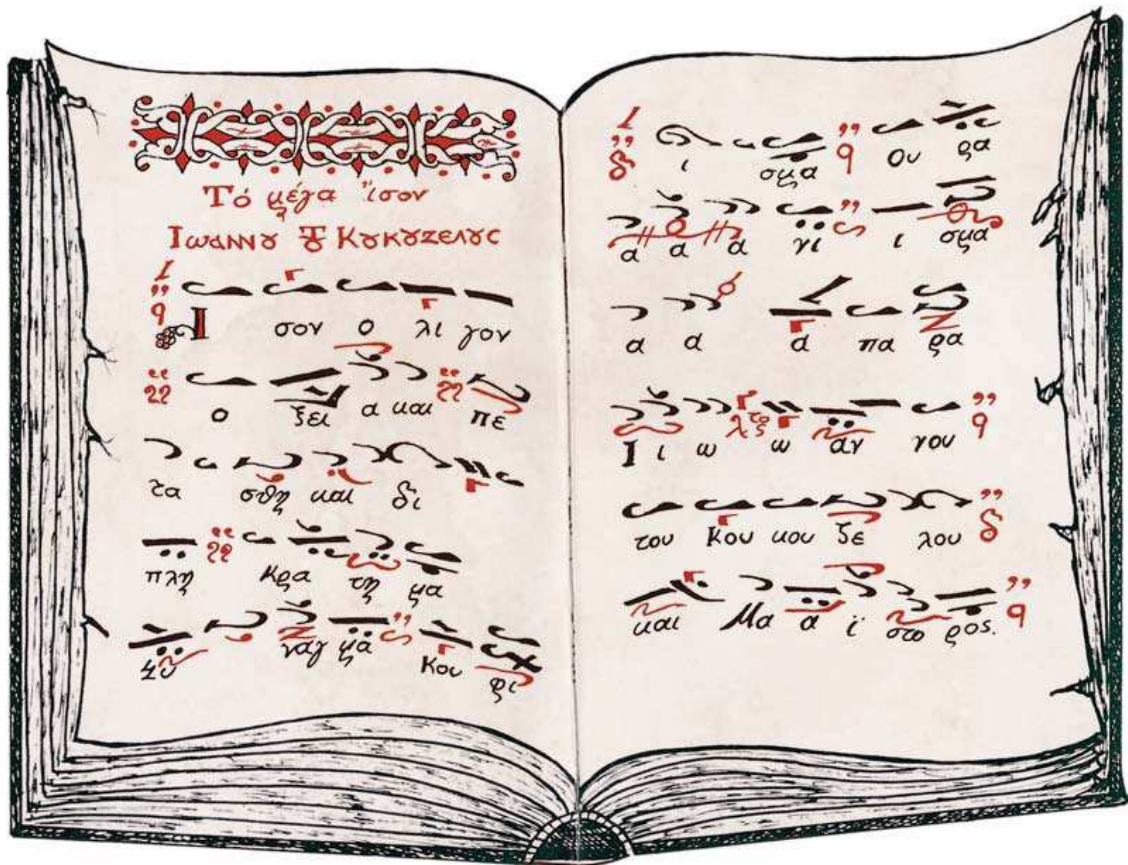 Τό μέγα ἴσον
Ἰωάννȣ τȣ Κȣκȣζελȣς
Ι σον ο λι γον
ο ξει α και πε
τα σθη και δι
πλη κρα τη μα
κυ ναγ μα κου φι
ι σμα ου ρα
α α α γι ι σμα
α α α πα ρα
Ι ι ω ω αν νου
του Κου κου ζε λου
και Μα α ϊ στο ρος.